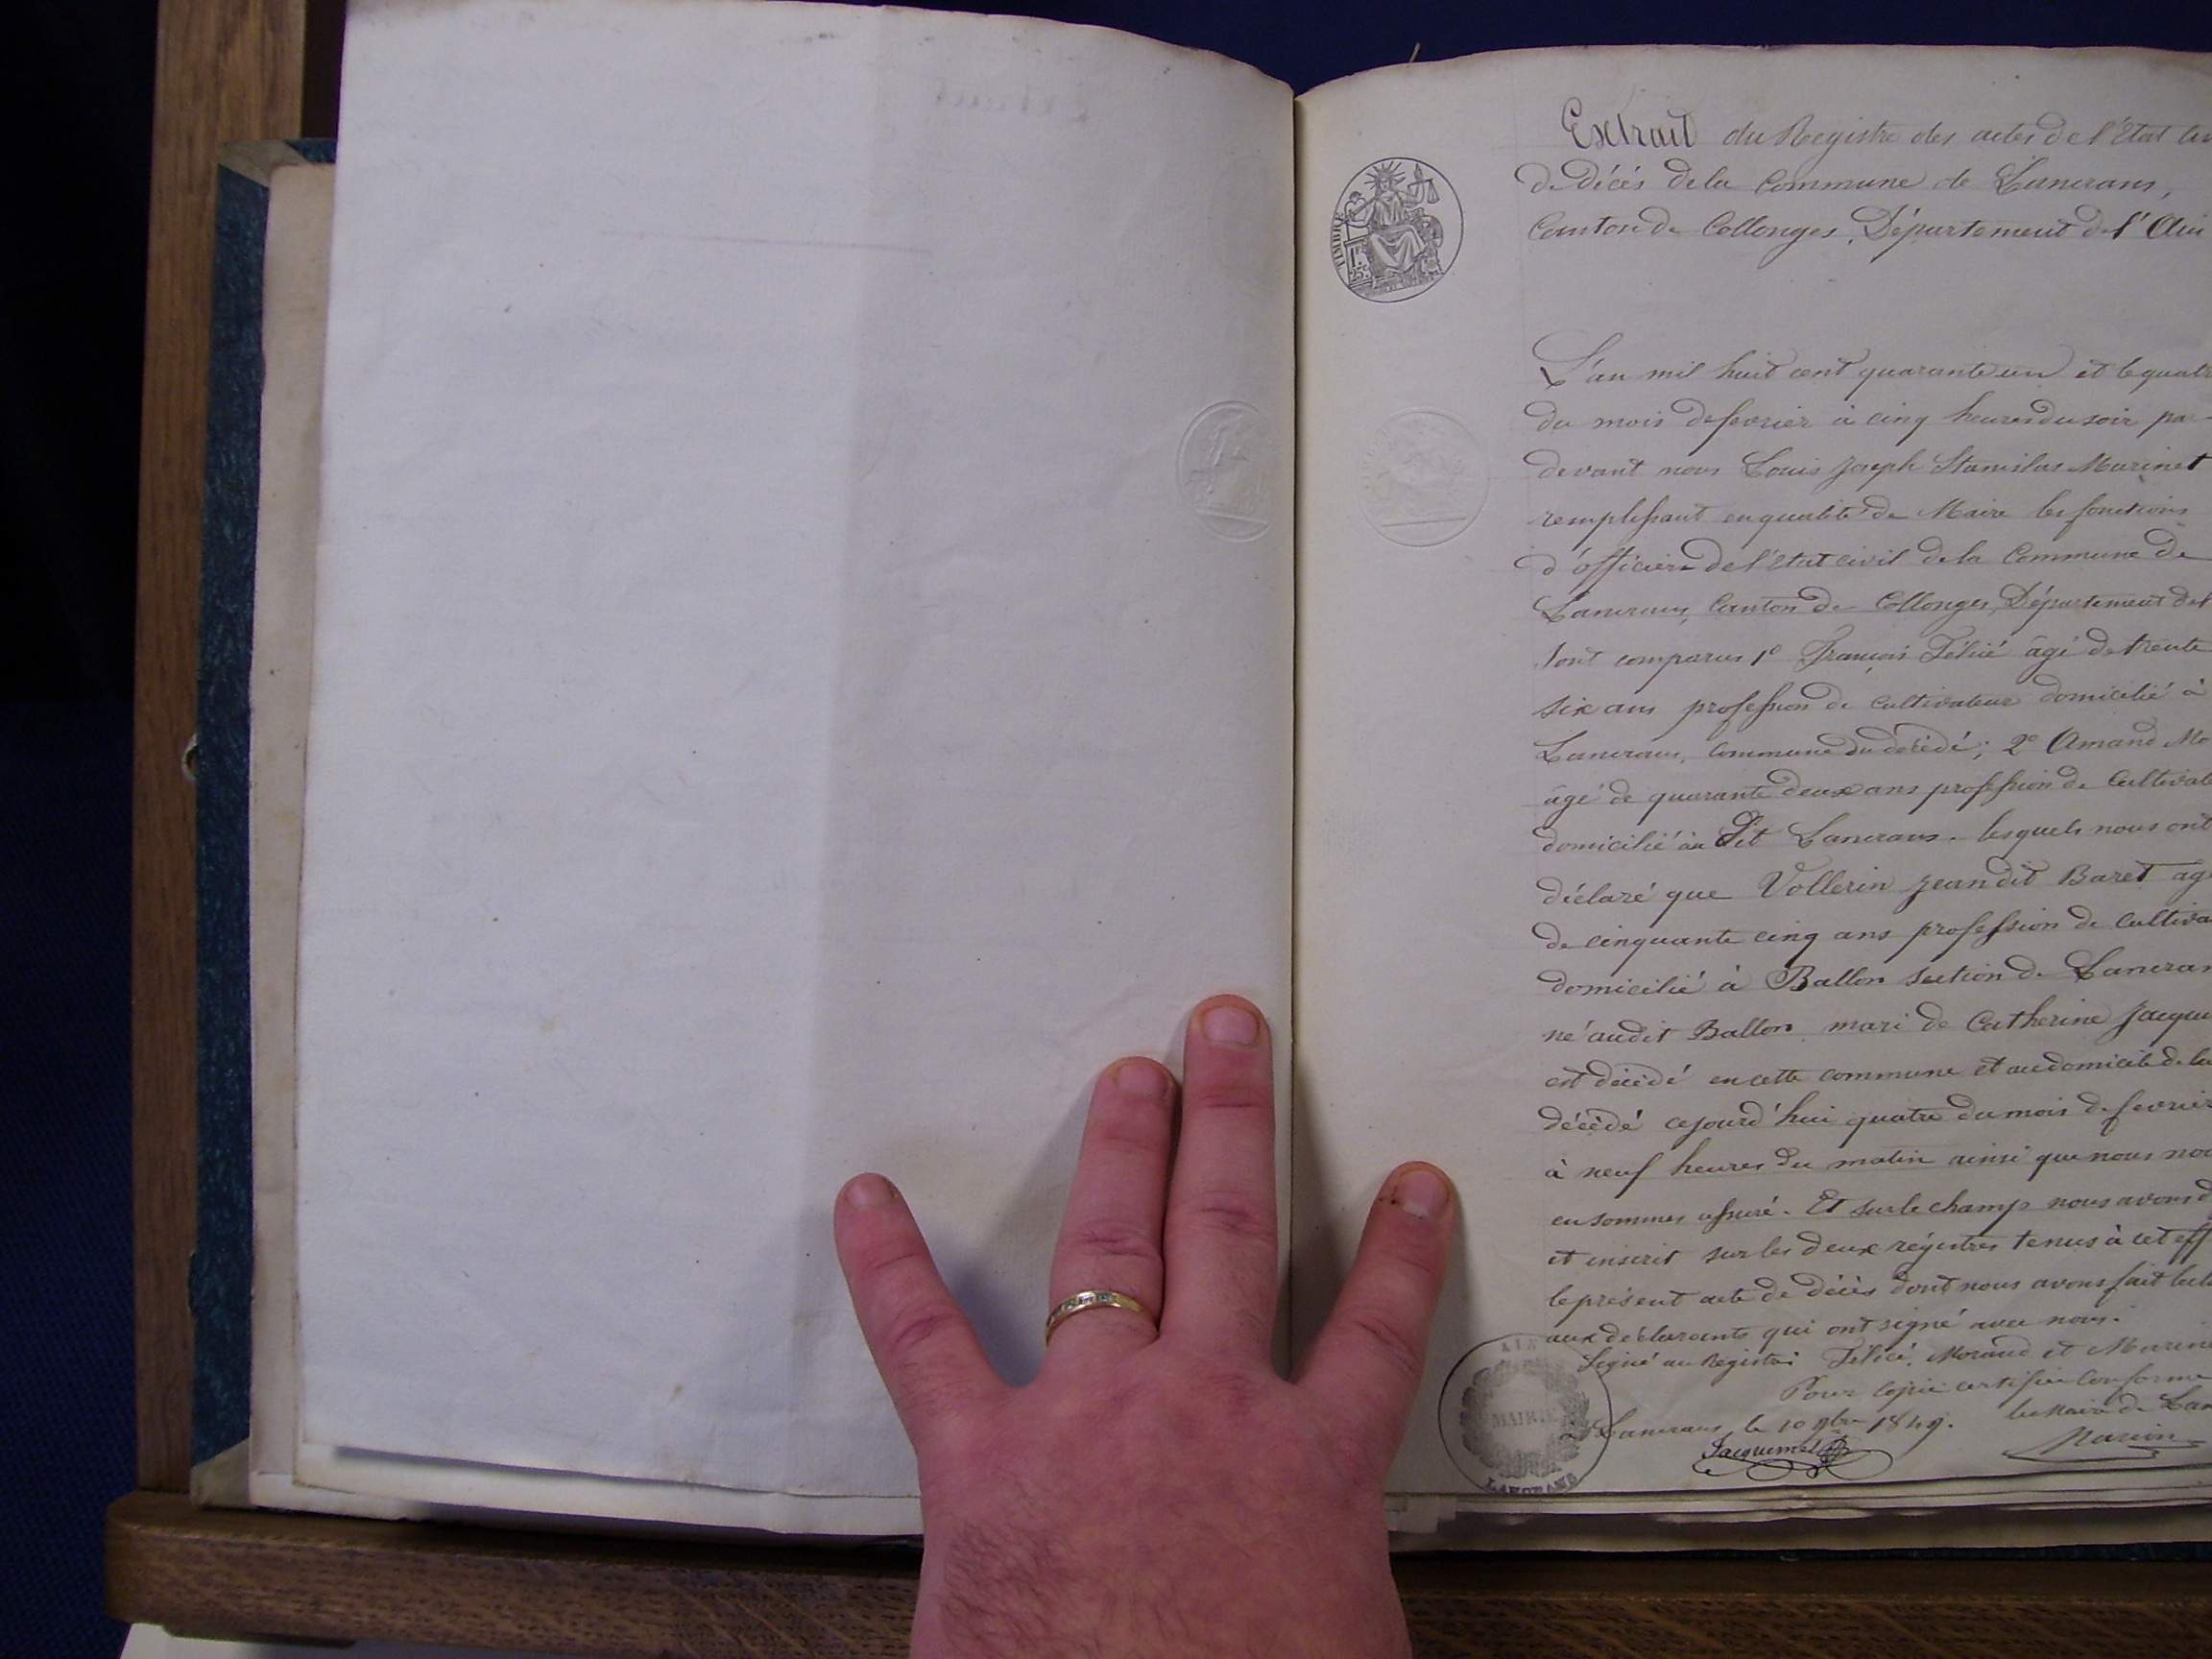 Extrait du Registre des actes de l'Etat
de Décès de la Commune de Lancrans,
Canton de Collonges, Département de l'Ain
TIMBRE
1F.
25c.
L'an mil huit cent quarante un et le quatr
du mois de fevrier à cinq heures du soir pa
devant nous Louis Joseph Stanislas Marinet
remplissant en qualité de Maire les fonctions
d'officier de l'Etat civil de la Commune de
Lancrans, Canton de Collonges, Département de l'
Sont comparus 1° François Félicé âgé de trente
six ans profession de Cultivateur domicilié à
Lancrans, Commune du décédé; 2° Amand Mo
âgé de quarante deux ans profession de Cultivat
domicilié au dit Lancrans. lesquels nous ont
déclaré que Vollerin Jean dit Baret ag
de cinquante cinq ans profession de Cultiva
domicilié à Ballon section de Lancran
né audit Ballon mari de Catherine Jacque
est décédé en cette commune et au domicile de lu
décédé cejourd'hui quatre du mois de fevrier
à neuf heures du matin ainsi que nous nou
en sommes assuré. Et sur le champ nous avons d
et inscrit sur les deux régistres tenus à cet eff
le présent acte de décès dont nous avons fait lectu
aux déclarants qui ont signé avec nous.
Signé au Registre Félicé, Morand et Marine
Pour Copie certifiée Conforme
Lancrans, le 10 9bre 1849. Le Maire de Lan
Jacquemet Marion
MAIRIE
LANCRANS